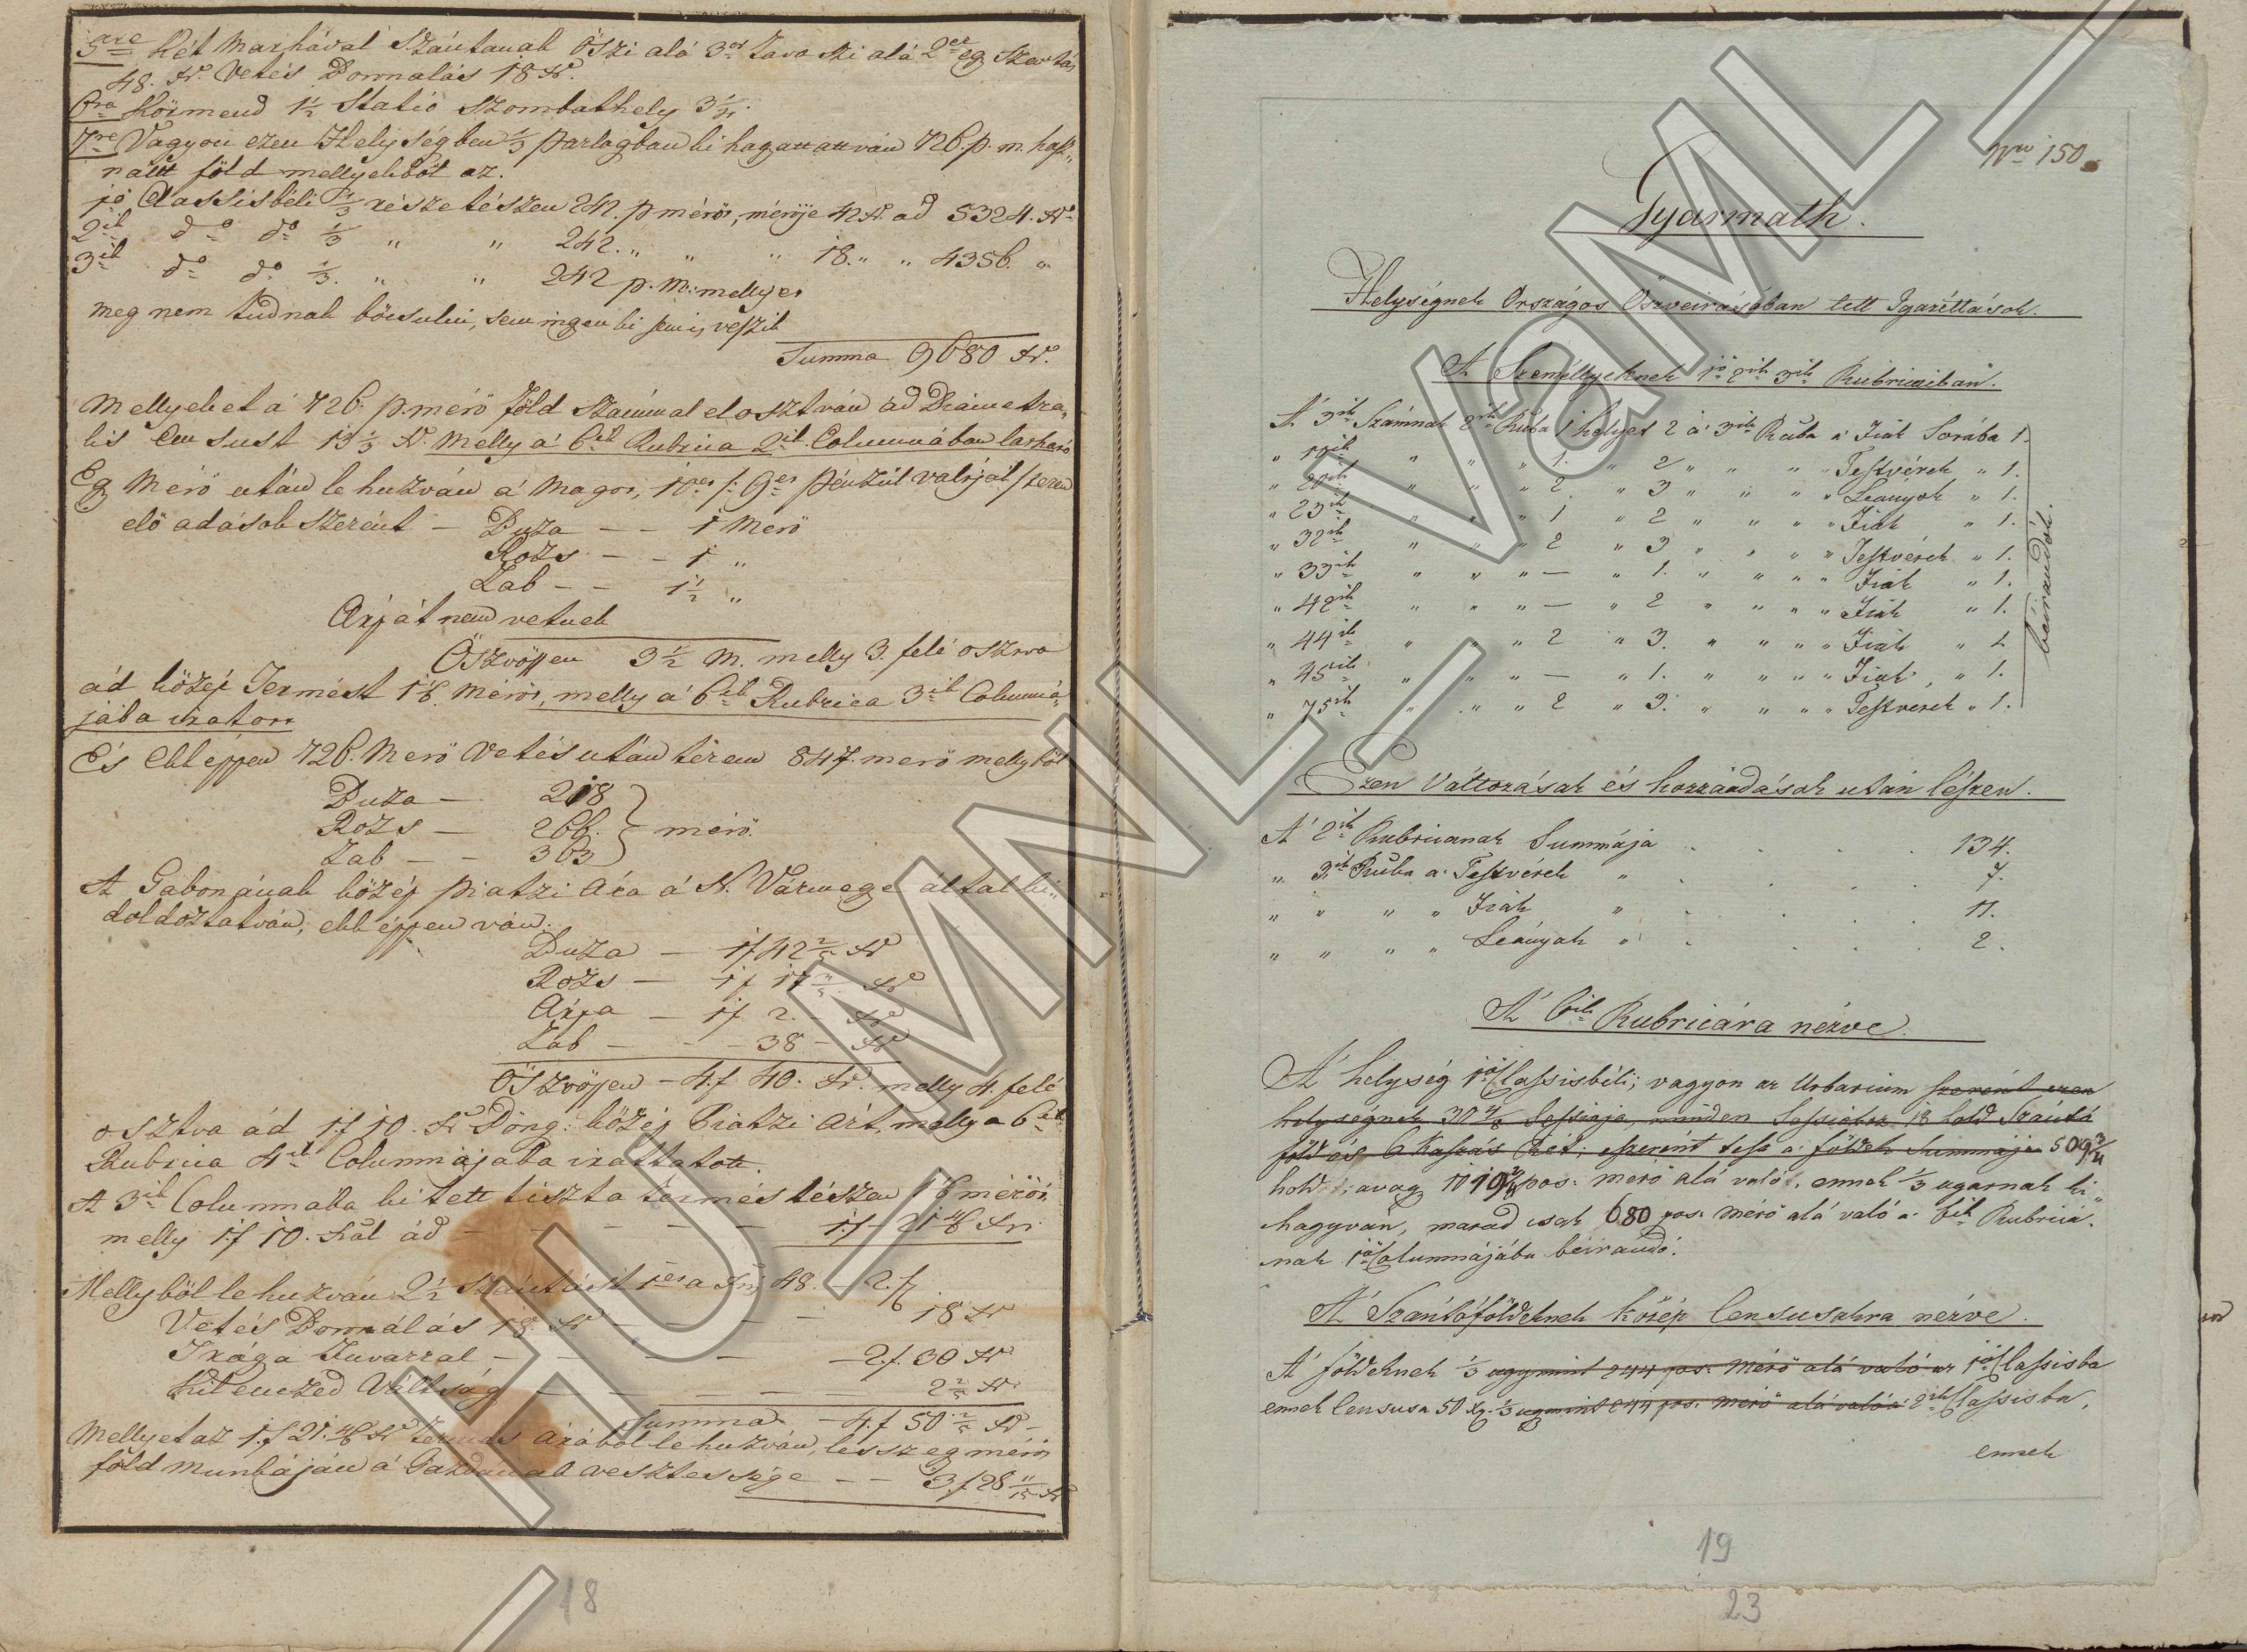 5re Két Marhával Szántanak Öszi alá 3or Tavaszi alá 2er eg Szántás
48. xr. Vetés Boronalás 18 xr.
6ra Körmend 1 1/2 Statió Szombathely 3 1/4.
7re Vagyon ezen Helységben 1/3 parlagban ki hagattattván 726. p. m. hasz„
nállt föld mellyekböl az.
1ö Classisbéli 1/3 része tészen 242. p mérös, méröje 22 xr. ad 5324. xr
2ik do do 1/3 „ „ 242. „ „ „ 18. „ „ 4356. „
3ik do do 1/3. „ „ 242 p. m. mellyet
meg nem tudnak bötsulni, sem ingen ki sem is veszik
Summa 9680 xr.
Mellyeket a' 726. p. mérö föld Számmal elosztván ad Diametra„
lis Censust 13 1/3 xr. melly a' 6ik Rubrica 2ik Columnában
Eg Mérö után le huzván a' Magot, 10es /: 9es pénzül valtját / ezen
elö adások szerént — Buza — — 1 Merö
Rozs — — 1 „
Zab — — 1 1/2 „
Árpát nem vetnek
Öszvössen 3 1/2 M. melly 3. felé osztva
ád közép Termést 1 1/6 mérös, melly a' 6ik Rubrica 3ik Columná„
jába iratott
És ekképpen 726. Merö Vetés után térem 847. merö mellyböl
Buza — 218
Rozs — 266. } mérö.
Zab — — 363
A Gabonának közép piatzi ára á N. Vármegye által ki„
doldoztatván, ekképpen ván.
Buza — 1f 42 2/5 xr
Rozs — 1f 17 3/5 xr
Árpa — 1f 2. — xr
Zab — — — 38 — xr
Öszvössen — 4.f 40. xr. melly 4. felé
osztva ád 1f 10. xr Pong: közép Piatzi Árt, melly a 6ik
Rubrica 4ik Columnájába irattatott.
A 3ik Columnába ki tett tiszta termés tészen 1 1/6 mérös
melly 1f 10. xral ád — — — — — 1f 21 4/6 xr.
Mellyböl le huzván 2 1/2 Szántást 1es a xrj 48. — 2.f.
Vetés Boronálás 18. xr — — — — 18 xr
Trága Fuvarral — — — — 2.f. 30 xr
Kilenczed Váltság — — — — — 2 2/5 xr
Summa — 4.f 50 2/5 xr —
Mellyet az 1.f 21. 4/6 xr termés árából le huzván, lessz eg mérös
föld munkáján á Gazdának vesztessége — — 3.f 28 11/15 xr
18
Nro 150.
Gyarmath.
Helységnek Országos Öszveirásában tett Igazittások.
A' Személlyeknek 1ö 2ik 3ik Rubricaiban.
A' 3ik Számnak 2ik Rubá 1 helyet 2 a' 3ik Ruba a' Fiak Sorába 1.
„ „ „ „ 1. „ 2 „ „ „ „ Testvérek „ 1.
„ „ „ „ 2 „ 3 „ „ „ „ Leányok „ 1.
„ 23ik „ „ „ 1 „ 2 „ „ „ „ Fiak „ 1.
„ 32ik „ „ „ 2 „ 3 „ „ „ „ Testvérek „ 1.
„ 33ik „ „ „ — „ 1. „ „ „ „ Fiak „ 1.
„ 42ik „ „ „ — „ 2 „ „ „ „ Fiak „ 1.
„ 44ik „ „ „ 2 „ 3. „ „ „ „ Fiak „ 1.
„ 45ik „ „ „ — „ 1. „ „ „ „ Fiak „ 1.
„ 75ik „ „ „ 2 „ 3. „ „ „ „ Testvérek „ 1.
béirandók.
Ezen Váltorásak és hozzáadások után lészen.
A' 2ik Rubricanak Summája . . . . 134.
„ 3ik Ruba a' Testvérek „ . . . 7.
„ „ „ „ Fiak „ . . . . 11.
„ „ „ „ Leányak „ . . . . 2.
A' 6ik Rubricára nézve.
A' helység 1ö Classisbéli; vagyon az Urbarium szerént ezen
helységnek 30 4/8 Sessioja, minden Sessiohoz 18 hold Szántó
föld és 6 Kaszás Rét; eszerint tesz a földek Summája 509 3/4
hold; avag 1019 2/4 pos. merö alá való, ennek 1/3 ugarnak ki„
hagyván, marad csak 680 pos. Mérö alá való a' 6ik Rubricá„
nak 1ö Calumnájába béirandó.
A' Szántóföldeknek közép Censusakra nézve.
A' földeknek 1/3 ugymint 244 pos. Mérö alá való az 1ö Classisba
ennek Censusa 50 xr. 1/3 ugymint 244 pos. merö alá való a' 2ik Classisba,
ennek
19
23
HU MNL VaML